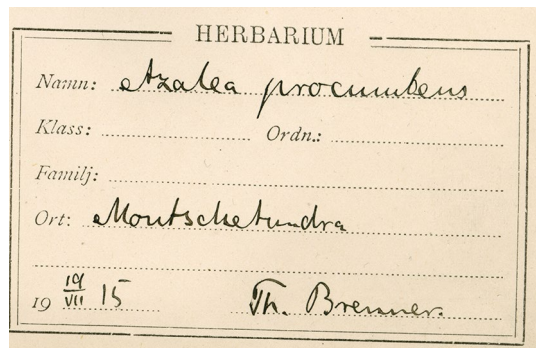 HERBARIUM
Namn: Azalea procumbens
Klass: Ordn.:
Familj:
Ort: Montschetundra
19 19/VII 15 Th. Brenner.